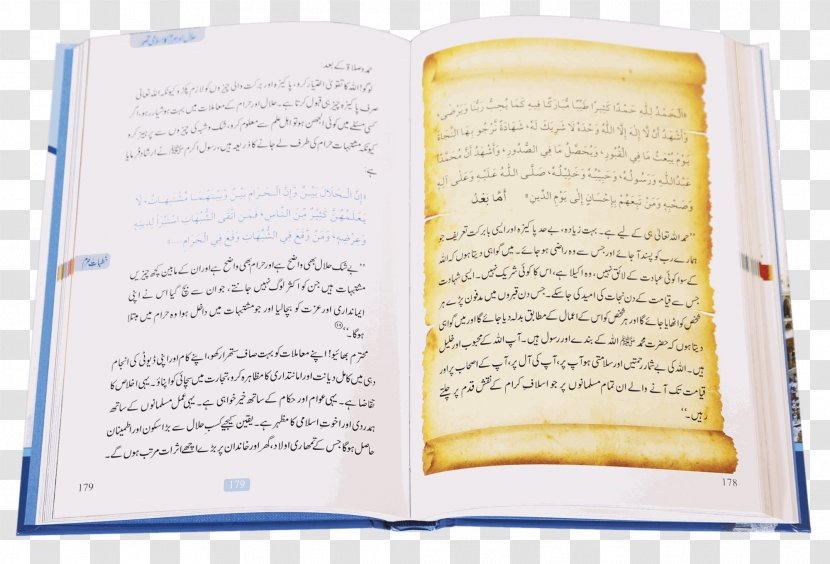 «اَلْحَمْدُ لِلّٰهِ حَمْدًا كَثِيْرًا طَيِّبًا مُبَارَكًا فِيهِ كَمَا يُحِبُّ رَبُّنَا وَيَرْضٰى،
وَأَشْهَدُ أَنْ لَّا إِلٰهَ إِلَّا اللّٰهُ وَحْدَهُ لَا شَرِيْكَ لَهُ، شَهَادَةً نَّرْجُو بِهَا النَّجَاةَ
يَوْمَ يُبْعَثُ مَا فِي الْقُبُورِ، وَيُحَصَّلُ مَا فِي الصُّدُورِ، وَأَشْهَدُ أَنَّ مُحَمَّدًا
عَبْدُاللّٰهِ وَرَسُولُهُ، وَحَبِيبُهُ وَخَلِيلُهُ، صَلَّى اللّٰهُ عَلَيْهِ وَعَلٰى آلِهِ
وَصَحْبِهِ وَمَنْ تَبِعَهُمْ بِإِحْسَانٍ إِلٰى يَوْمِ الدِّينِ» أَمَّا بَعْدُ
”حمد اللہ تعالیٰ ہی کے لیے ہے۔ بہت زیادہ، بے حد پاکیزہ اور ایسی بابرکت تعریف جو
ہمارے رب کو پسند آ جائے اور جس سے وہ راضی ہو جائے۔ میں گواہی دیتا ہوں کہ اللہ
کے سوا کوئی عبادت کے لائق نہیں، وہ اکیلا ہے، اس کا کوئی شریک نہیں۔ ایسی شہادت
جس سے قیامت کے دن نجات کی امید کی جا سکے۔ جس دن قبروں میں مدفون پڑے ہر
شخص کو اٹھایا جائے گا اور ہر شخص کو اس کے اعمال کے مطابق بدلہ دیا جائے گا اور میں گواہی
دیتا ہوں کہ حضرت محمد ﷺ اللہ کے بندے اور رسول ہیں۔ آپ اللہ کے محبوب اور خلیل
ہیں۔ اللہ کی بے شمار رحمتیں اور سلامتی ہو آپ پر، آپ کی آل پر، آپ کے اصحاب پر اور
قیامت تک آنے والے ان تمام مسلمانوں پر جو اسلاف کرام کے نقش قدم پر چلتے
رہیں۔“
178
حمد و صلاۃ کے بعد:
لوگو! اللہ کا تقویٰ اختیار کرو، پاکیزہ اور برکت والی چیزوں کو لازم پکڑو کیونکہ اللہ تعالیٰ
صرف پاکیزہ چیز ہی قبول کرتا ہے۔ حلال اور حرام کے معاملات میں بہت ہوشیار رہو، اگر
کسی مسئلے میں کوئی الجھن ہو تو اہل علم سے معلوم کرو، شک و شبہ کی چیزوں سے پرہیز کرو
کیونکہ مشتبہات حرام کی طرف لے جانے کا ذریعہ ہیں، رسول اکرم ﷺ نے ارشاد فرمایا
ہے:
«إِنَّ الْحَلَالَ بَيِّنٌ وَّإِنَّ الْحَرَامَ بَيِّنٌ وَّبَيْنَهُمَا مُشْتَبِهَاتٌ، لَا
يَعْلَمُهُنَّ كَثِيرٌ مِّنَ النَّاسِ، فَمَنِ اتَّقَى الشُّبُهَاتِ اسْتَبْرَأَ لِدِينِهِ
وَعِرْضِهِ، وَمَنْ وَّقَعَ فِي الشُّبُهَاتِ وَقَعَ فِي الْحَرَامِ....»
خطبات حرم
”بے شک حلال بھی واضح ہے اور حرام بھی واضح ہے اور ان کے مابین کچھ چیزیں
مشتبہات ہیں جن کو اکثر لوگ نہیں جانتے، جو ان سے بچ گیا اس نے اپنی
ایمانداری اور عزت کو بچا لیا اور جو مشتبہات میں داخل ہوا وہ حرام میں مبتلا
ہوگا۔“
محترم بھائیو! اپنے معاملات کو بہت صاف ستھرا رکھو، اپنے کام اور اپنی ڈیوٹی کی انجام
دہی میں کامل دیانت اور امانتداری کا مظاہرہ کرو، تجارت میں سچائی کو اپناؤ۔ یہی اخلاص کا
تقاضا ہے۔ یہی عوام اور حکام کے ساتھ خیر خواہی ہے۔ یہی عمل مسلمانوں کے ساتھ
ہمدردی اور اخوت اسلامی کا مظہر ہے۔ یقین کیجیے کسب حلال سے بڑا سکون اور اطمینان
حاصل ہوگا جس کے تمھاری اولاد، گھر اور خاندان پر بڑے اچھے اثرات مرتب ہوں گے۔
179
179